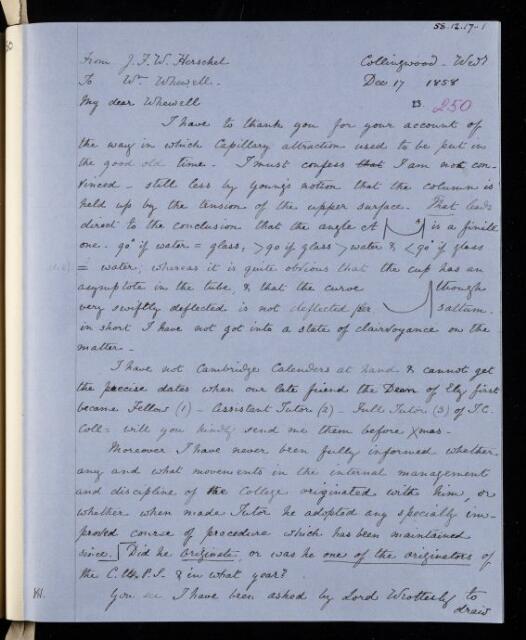 58.12.17.1
From J. F. W. Herschel
Collingwood - Wedy
To Wm Whewell.
Dec 17 1858
My dear Whewell
250
I have to thank you for your account of
the way in which Capillary attraction used to be put in
the good old time. - I must confess that I am not con-
vinced - still less by Young's notion that the column is
held up by the tension of the upper surface. That leads
direct to the conclusion that the angle at A is a finite
one. 90° if water = glass, > 90 if glass > water & < 90° if glass
= water; whereas it is quite obvious that the cup has an
asymptote in the tube, & that the curve through
very swiftly deflected is not deflected per saltum.
in short I have not got into a state of clairvoyance on the
matter -
I have not Cambridge Calenders at hand & cannot get
the precise dates when our late friend the Dean of Ely first
became Fellow (1) - Assistant Tutor (2) - Full Tutor (3) of T.C.
Coll = will you kindly send me them before Xmas -
Moreover I have never been fully informed whether
any and what movements in the internal management
and discipline of the College originated with him, or
whether when made Tutor he adopted any specially im-
proved course of procedure which has been maintained
since. Did he originate, or was he one of the originators of
the C.U.P.S. & in what year?
You see I have been asked by Lord Wrottesley to
draw